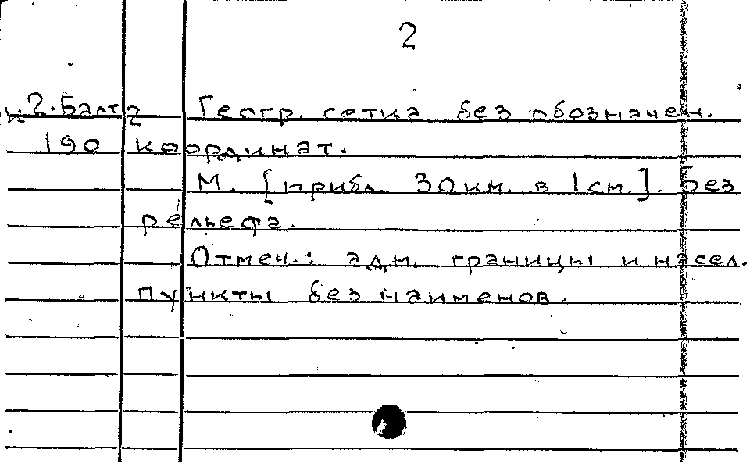 2
Геогр. сетка без обозначен.
190 координат.
М. [прибл. 30 км. в 1 см.]. Без
рельефа.
Отмеч.: адм. границы и насел.
пункты без наименов.